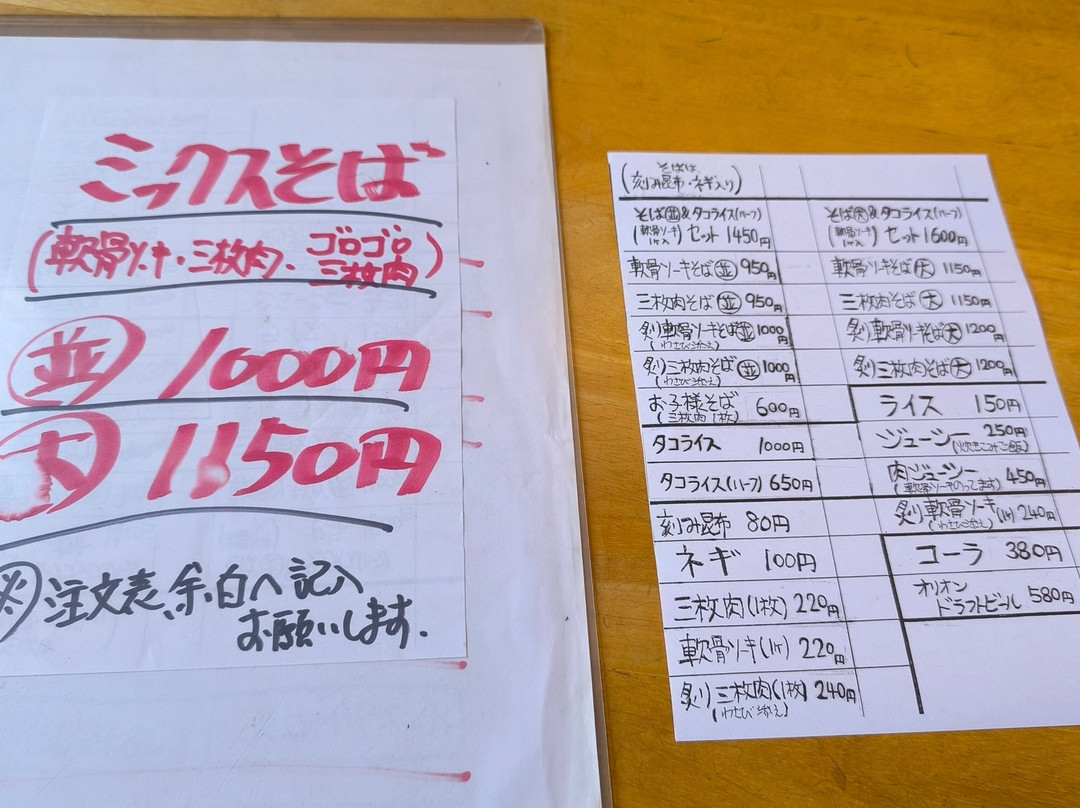 ミックスそば
(軟骨ソーキ・三枚肉・ゴロゴロ三枚肉)
並 1000円
大 1150円
注文表、余白へ記入
お願いします。
そばは
(刻み昆布・ネギ入り)
そば並&タコライス(ハーフ)
(軟骨ソーキ1ケ入) セット 1450円
そば大&タコライス(ハーフ)
(軟骨ソーキ1ケ入) セット 1600円
軟骨ソーキそば並 950円
軟骨ソーキそば大 1150円
三枚肉そば並 950円
三枚肉そば大 1150円
炙り軟骨ソーキそば並 1000円
(わさび添え)
炙り軟骨ソーキそば大 1200円
炙り三枚肉そば並 1000円
(わさび添え)
炙り三枚肉そば大 1200円
お子様そば 600円
(三枚肉1枚)
ライス 150円
タコライス 1000円
ジューシー 250円
(炊きこみご飯)
タコライス(ハーフ) 650円
肉ジューシー 450円
(軟骨ソーキのってます)
刻み昆布 80円
炙り軟骨ソーキ(1ケ) 240円
(わさび添え)
ネギ 100円
コーラ 380円
三枚肉(1枚) 220円
オリオン
ドラフトビール 580円
軟骨ソーキ(1ケ) 220円
炙り三枚肉(1枚) 240円
(わさび添え)